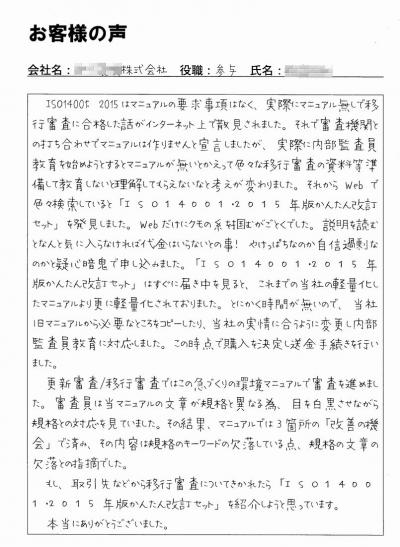 お客様の声
会社名： 株式会社 役職：参与 氏名：
ISO14001:2015はマニュアルの要求事項はなく、実際にマニュアル無しで移
行審査に合格した話がインターネット上で散見されました。それで審査機関と
の打ち合わせでマニュアルは作りませんと宣言しましたが、実際に内部監査員
教育を始めようとするとマニュアルが無いとかえって色々な移行審査の資料等準
備して教育しないと理解してもらえないなと考えが変わりました。それからWebで
色々検索していると「ISO14001・2015年版かんたん改訂
セット」を発見しました。Webだけにクモの糸を掴むがごとくでした。説明を読む
となんと気に入らなければ代金はいらないとの事！やけっぱちなのか自信過剰な
のかと疑心暗鬼で申し込みました。「ISO14001・2015年
版かんたん改訂セット」はすぐに届き中を見ると、これまでの当社の軽量化し
たマニュアルより更に軽量化されておりました。とにかく時間が無いので、当社
旧マニュアルから必要なところをコピーしたり、当社の実情に合うように変更し内部
監査員教育に対応しました。この時点で購入を決定し送金手続きを行い
ました。
更新審査/移行審査ではこの急づくりの環境マニュアルで審査を進めまし
た。審査員は当マニュアルの文章が規格と異なる為、目を白黒させながら
規格との対応を見ていました。その結果、マニュアルでは3箇所の「改善の機
会」で済み、その内容は規格のキーワードの欠落している点、規格の文章の
欠落との指摘でした。
もし、取引先などから移行審査についてきかれたら「ISO1400
1・2015年版かんたん改訂セット」を紹介しようと思っています。
本当にありがとうございました。